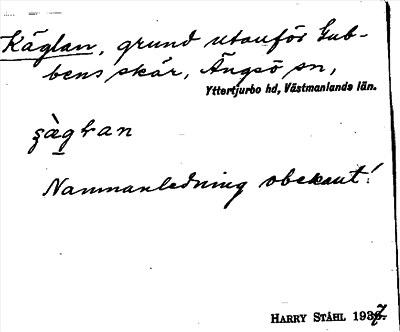 Käglan, grund utanför Gub-
bens skär, Ängsö sn,
Yttertjurbo hd, Västmanlands län.
Namnanledning obekant!
HARRY STÅHL 1937.